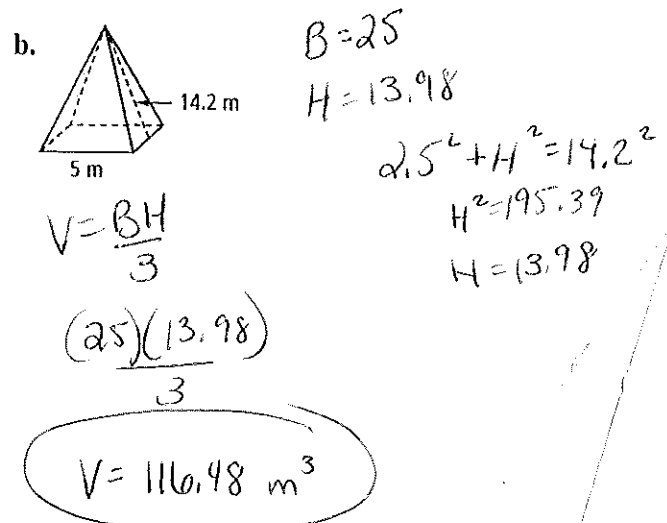 b.
14.2 m
5 m
B = 25
H = 13.98
2.5² + H² = 14.2²
H² = 195.39
H = 13.98
V = BH
3
(25)(13.98)
3
V = 116.48 m³